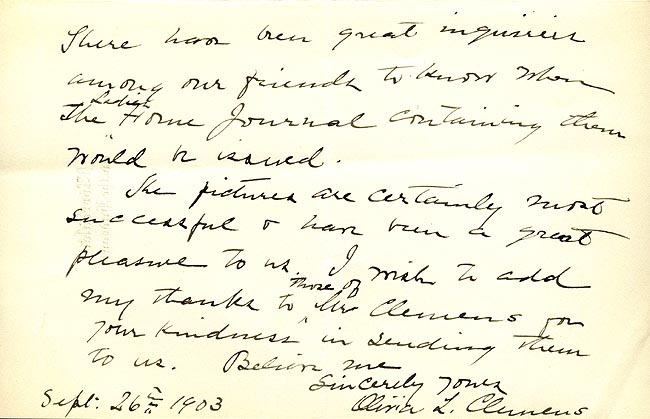 There have been great inquiries
among our friends to know when
the Ladies Home Journal containing them
would be issued.
The pictures are certainly most
successful & have been a great
pleasure to us. I wish to add
my thanks to those of Mr Clemens for
your kindness in sending them
to us. Believe me
Sincerely yours
Olivia L. Clemens
Sept. 26th 1903